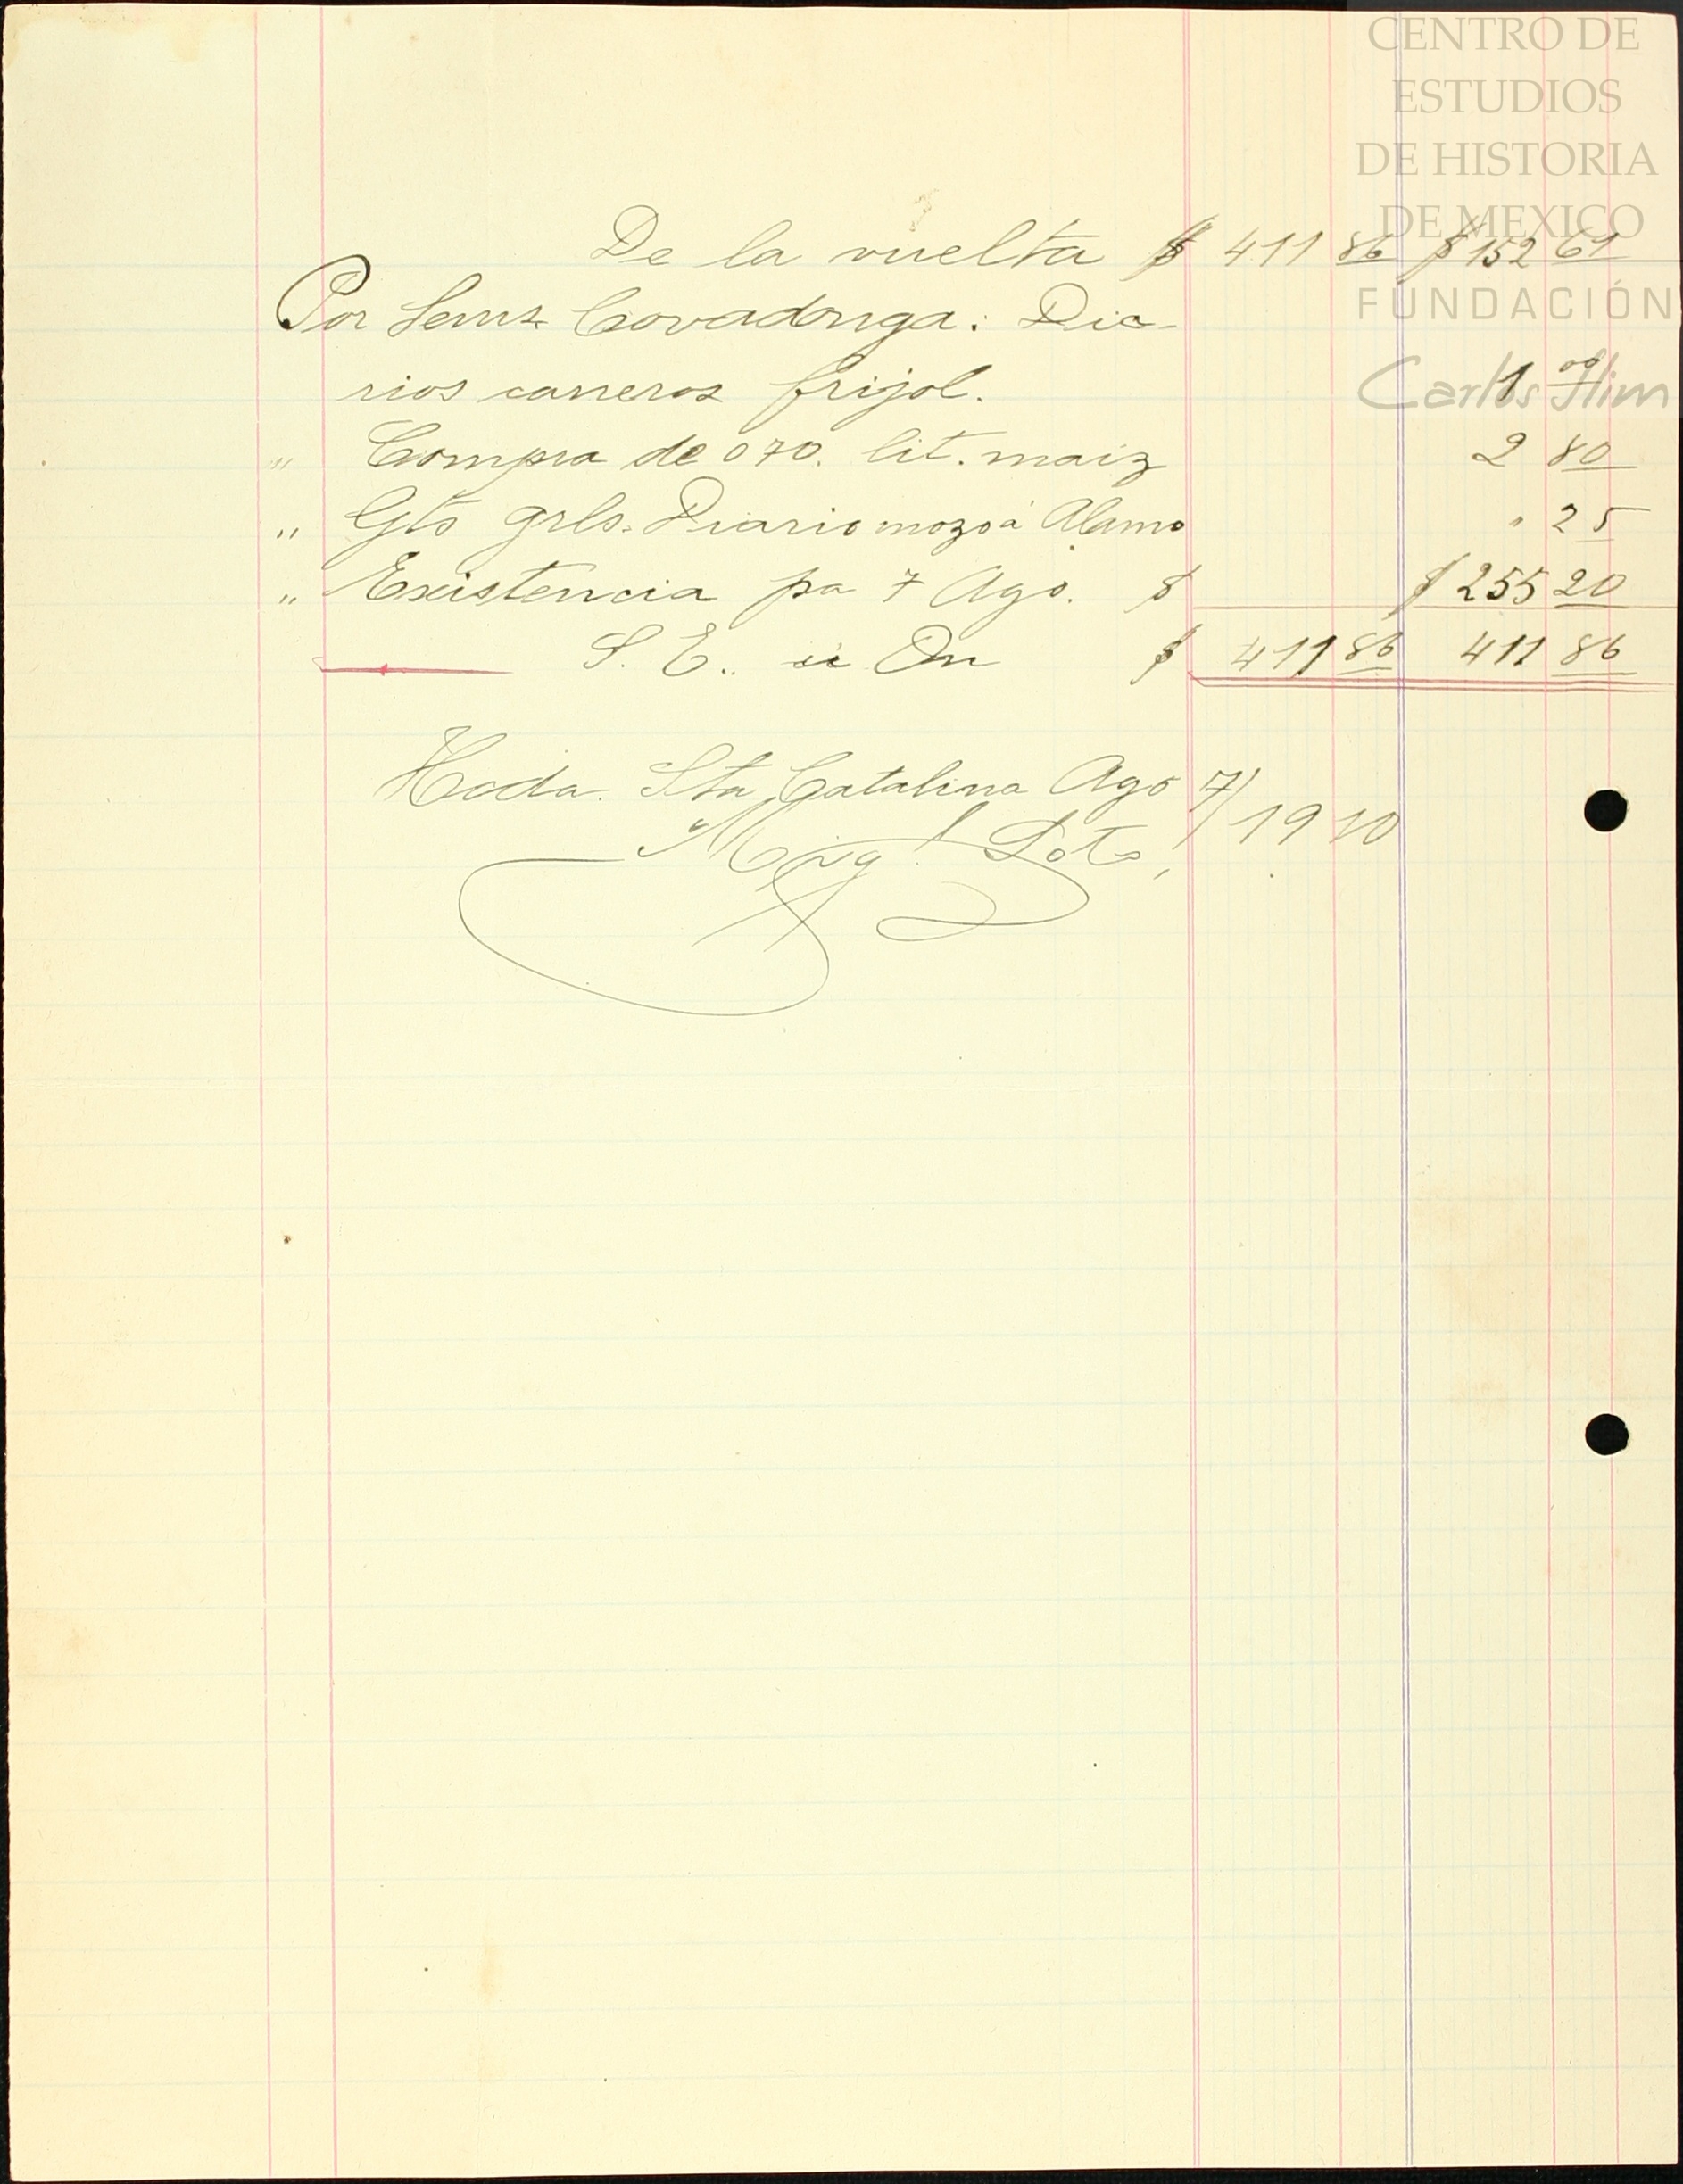 CENTRO DE
ESTUDIOS
DE HISTORIA
DE MEXICO
FUNDACIÓN
Carlos Slim
De la vuelta $ 411 86 $ 152 61
Por Sems. Covadonga: Dia-
rios carreros frijol. 1 00
" Compra de 070. lit. maiz 2 80
" Gto grls. Diario mozo á Alamo " 25
" Existencia pa 7 Ago. $ $ 255 20
S. E. ú On $ 411 86 411 86
Hcda. Sta Catalina Ago 7/1910
Migl Soto,